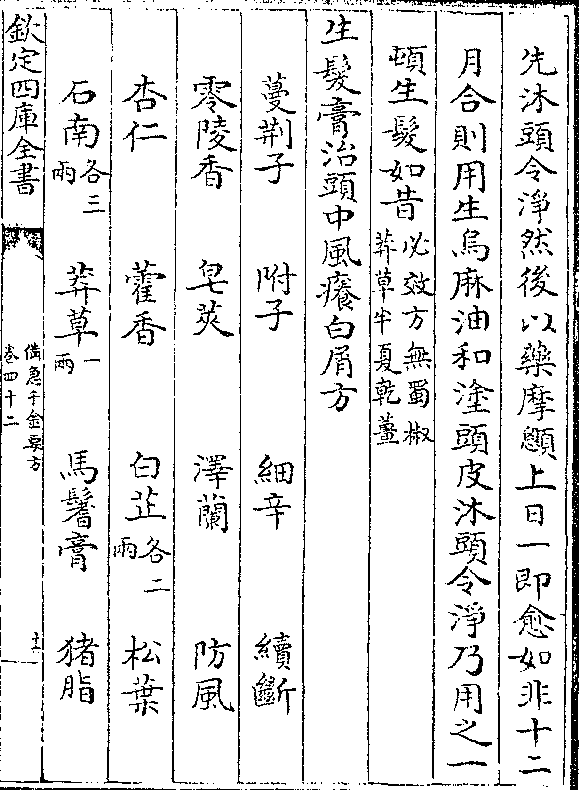 先沐頭令淨然後以藥摩顖上日一即愈如非十二
月合則用生烏麻油和塗頭皮沐頭令淨乃用之一
頓生髮如昔必效方無蜀椒莽草半夏乾薑
生髮膏治頭中風癢白屑方
蔓荆子 附子 細辛 續斷
零陵香 皂莢 澤蘭 防風
杏仁 藿香 白芷各二兩 松葉
石南各三兩 莽草一兩 馬鬐膏 猪脂
欽定四庫全書 備急千金要方卷四十二